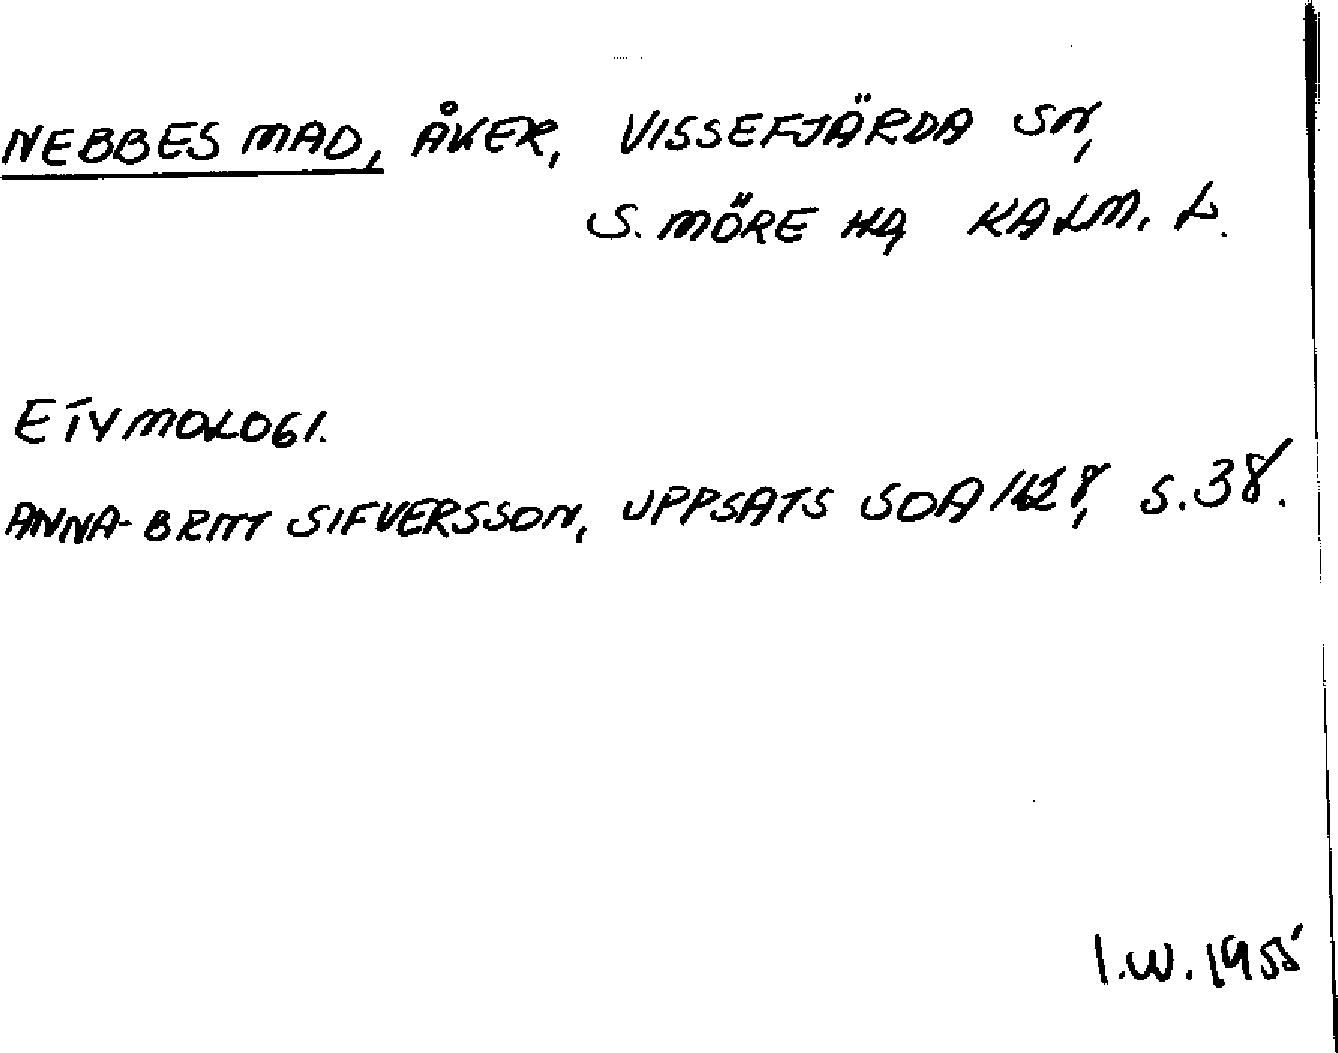 NEBBES MAD, ÅKER, VISSEFJÄRDA SN,
S. MÖRE HD, KALM. L.
ETYMOLOGI.
ANNA-BRITT SIFVERSSON, UPPSATS SOA 1628, S. 38.
I.W. 1955